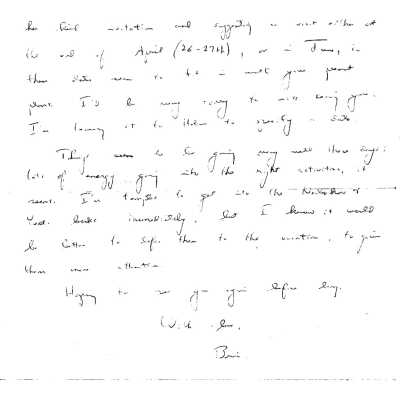 her kind invitation and suggesting a visit either at
the end of April (26-27th), or in June, in
these dates seem to be in with your present
plans. I'd be very sorry to miss seeing you.
I'm leaving it to them to specify a date.
Things seem to be going very well these days:
lots of energy going into the right activities, it
seems. I'm tempted to get into the
books immediately, but I know it would
be better to save them to the vacation, to give
them more attention.
Hoping to see you again before long.
With love,